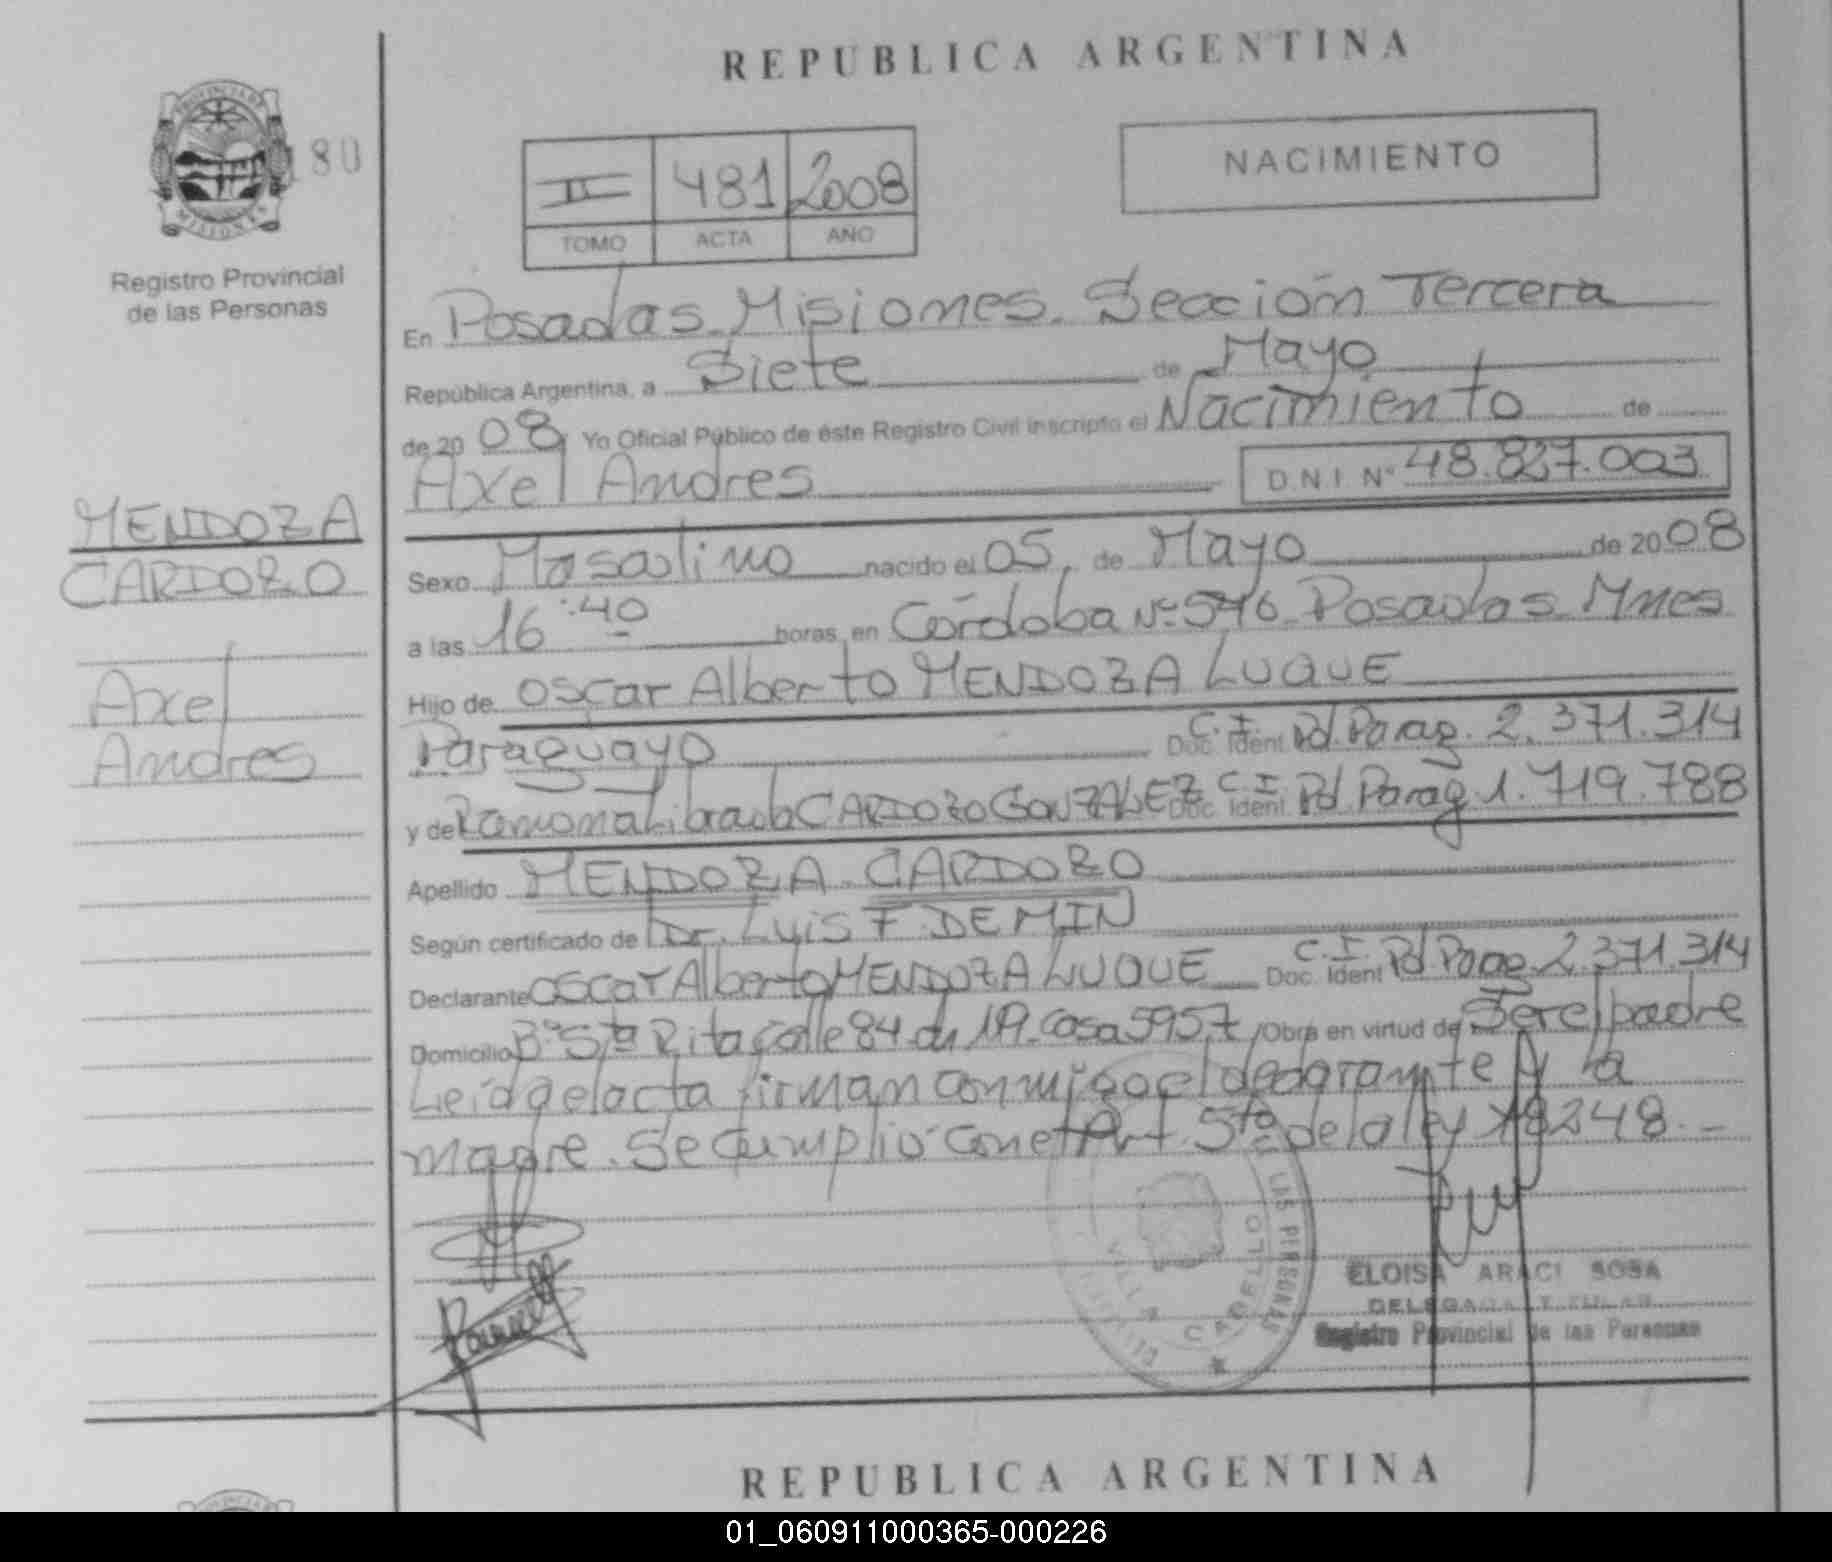 REPUBLICA ARGENTINA
PROVINCIA DE
MISIONES
180
Registro Provincial
de las Personas
II 481 2008
TOMO ACTA AÑO
NACIMIENTO
En Posadas Misiones. Sección Tercera
República Argentina, a Siete de Mayo
de 2008 Yo Oficial Público de éste Registro Civil inscripto el Nacimiento de
Axel Andres D.N.I. Nº 48.827.003
MENDOZA
CARDOZO
Axel
Andres
Sexo Masculino nacido el 05, de Mayo de 2008
a las 16:40 horas, en Córdoba Nº 546 Posadas Mnes
Hijo de Oscar Alberto MENDOZA LUQUE
Paraguayo Doc. Ident. C.I. Pol. Parag. 2.371.314
y de Ramona Librada CARDOZO GONZALEZ Doc. Ident. C.I. Pol. Parag 1.719.788
Apellido MENDOZA CARDOZO
Según certificado de Dr. Luis F. DEMIN
Declarante OSCAR Alberto MENDOZA LUQUE Doc. Ident C.I. Pol. Parag. 2.371.314
Domicilio Bº Sta Rita Calle 84 du 119 Casa 5957 /Obra en virtud de Ser el padre
Leida el acta firman conmigo el declarante y la
madre. Se cumplió con el Art. 5to de la ley 18248.-
LAS PERSONAS
VILLA CABELLO
ELOISA ARACI SOSA
DELEGADA TITULAR
Registro Provincial de las Personas
REPUBLICA ARGENTINA
01_060911000365-000226